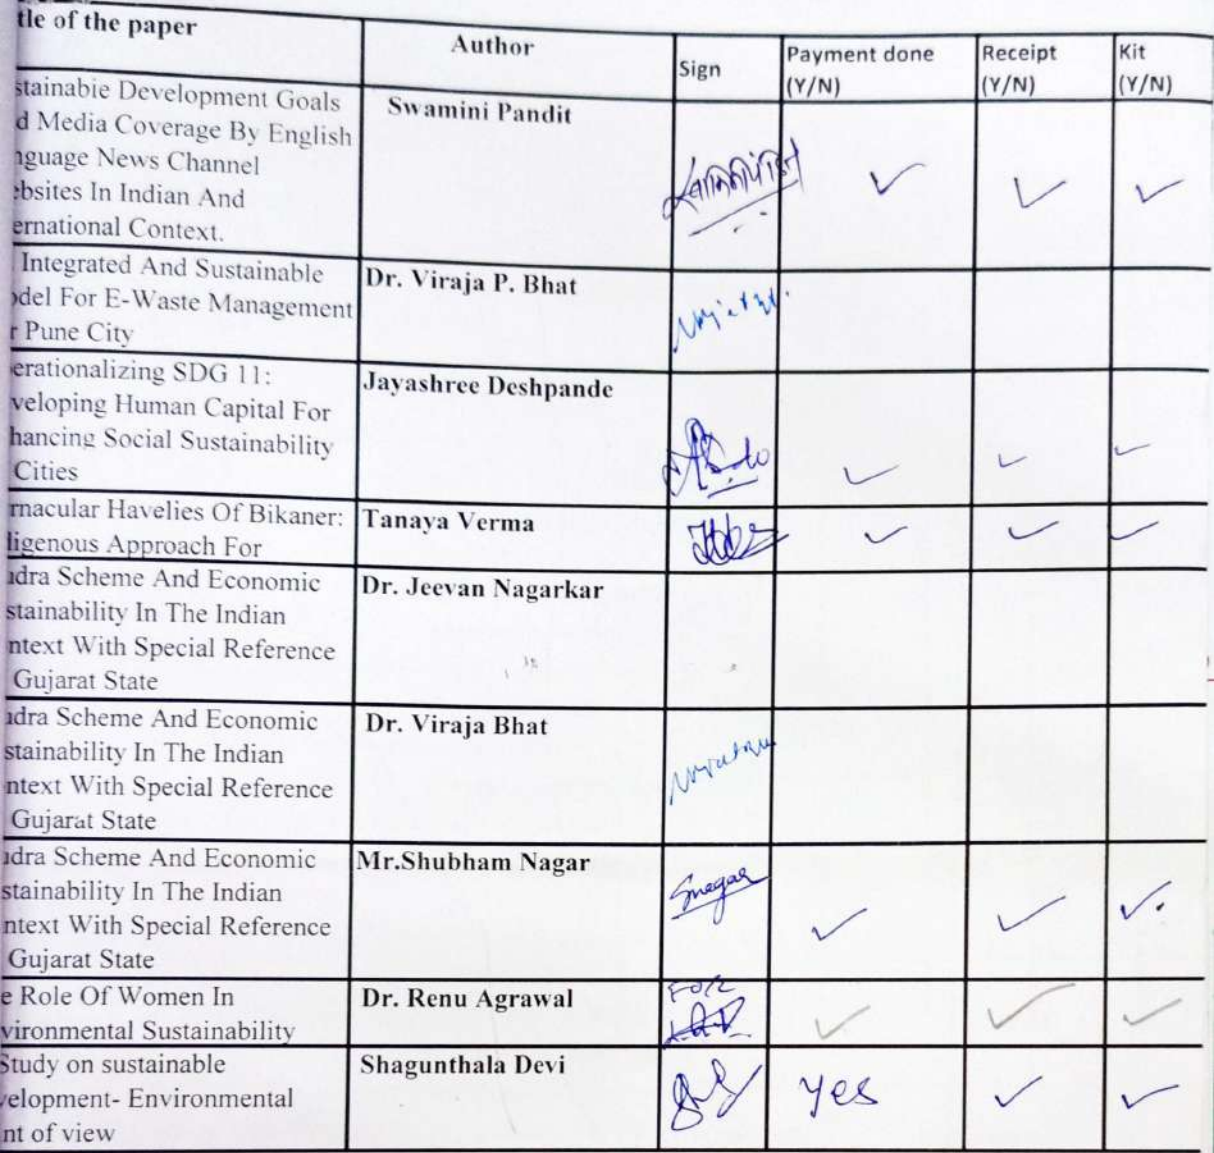 tle of the paper
Author
Sign
Payment done
(Y/N)
Receipt
(Y/N)
Kit
(Y/N)
stainabie Development Goals
d Media Coverage By English
nguage News Channel
ebsites In Indian And
ernational Context.
Swamini Pandit
Integrated And Sustainable
odel For E-Waste Management
r Pune City
Dr. Viraja P. Bhat
erationalizing SDG 11:
veloping Human Capital For
hancing Social Sustainability
Cities
Jayashree Deshpande
rnacular Havelies Of Bikaner:
digenous Approach For
Tanaya Verma
udra Scheme And Economic
stainability In The Indian
ntext With Special Reference
Gujarat State
Dr. Jeevan Nagarkar
udra Scheme And Economic
stainability In The Indian
ntext With Special Reference
Gujarat State
Dr. Viraja Bhat
udra Scheme And Economic
stainability In The Indian
ntext With Special Reference
Gujarat State
Mr.Shubham Nagar
Snagar
e Role Of Women In
vironmental Sustainability
Dr. Renu Agrawal
FOR
Study on sustainable
velopment- Environmental
nt of view
Shagunthala Devi
Yes